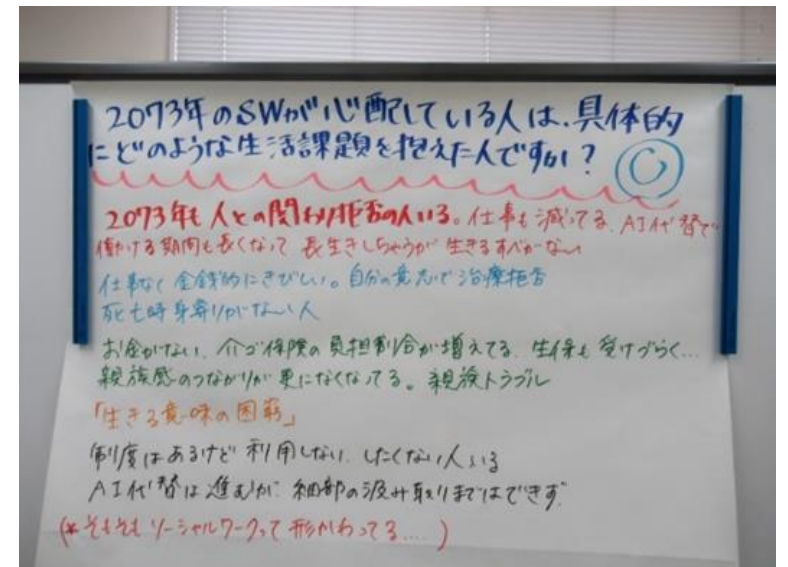 2073年のSWが心配している人は、具体的
にどのような生活課題を抱えた人ですか?
2073年も人との関わり拒否の人いる。仕事も減ってる、AI代替で
働ける期間も長くなって 長生きしちゃうが 生きるすべがない
仕事なく金銭的にきびしい。自分の意志で治療拒否
死亡時身寄りがない人
お金がない、介ゴ保険の負担割合が増えてる、生保も受けづらく…
親族感のつながりが更になくなってる。親族トラブル
「生きる意味の困窮」
制度はあるけど利用しない、したくない人いる
AI代替は進むが 細部の汲み取りまではできず
(*そもそもソーシャルワークって形かわってる……)